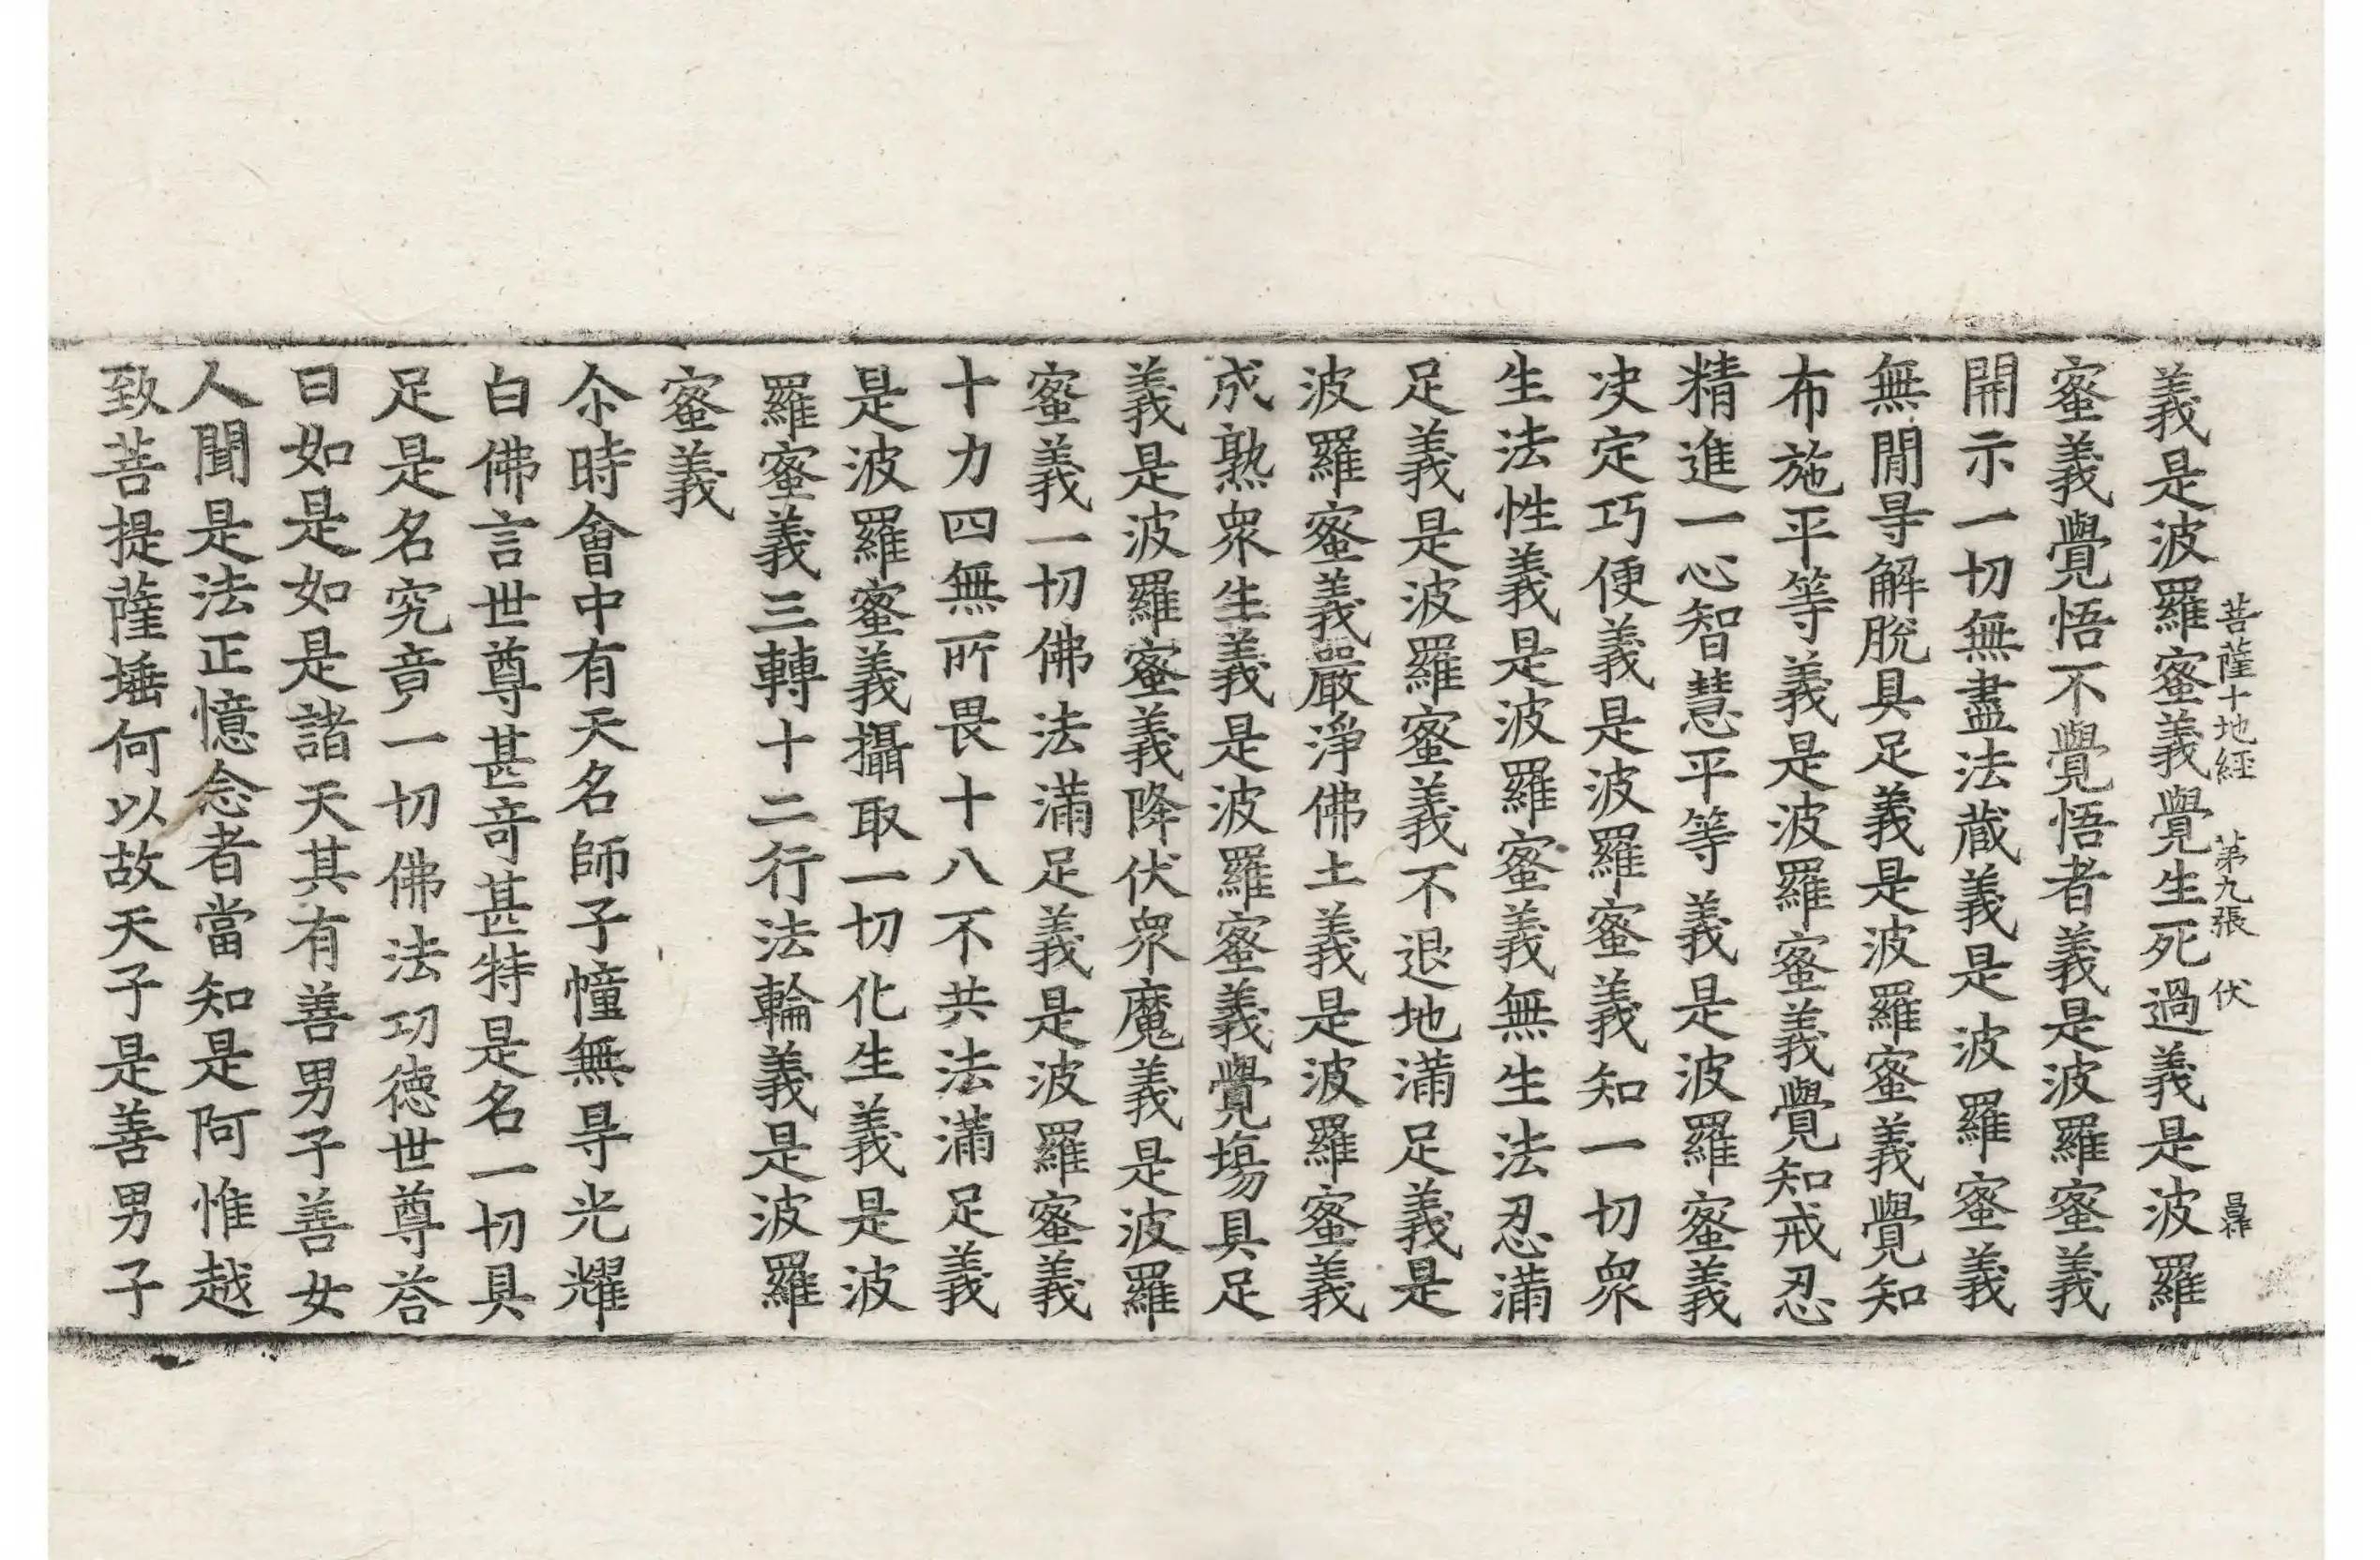 菩薩十地經 第九張 伏
義是波羅蜜義覺生死過義是波羅
蜜義覺悟不覺悟者義是波羅蜜義
開示一切無盡法蔵義是波羅蜜義
無閡㝵解脫具足義是波羅蜜義覺知
布施平等義是波羅蜜義覺知戒忍
精進一心智慧平等義是波羅蜜義
决定巧便義是波羅蜜義知一切衆
生法性義是波羅蜜義無生法忍滿
足義是波羅蜜義不退地滿足義是
波羅蜜義嚴淨佛土義是波羅蜜義
成熟衆生義是波羅蜜義覺塲具足
義是波羅蜜義降伏衆魔義是波羅
蜜義一切佛法滿足義是波羅蜜義
十力四無所畏十八不共法滿足義
是波羅蜜義攝取一切化生義是波
羅蜜義三轉十二行法輪義是波羅
蜜義
尒時會中有天名師子幢無㝵光耀
白佛言世尊甚竒甚特是名一切具
足是名究竟一切佛法功德世尊荅
曰如是如是諸天其有善男子善女
人聞是法正憶念者當知是阿惟越
致菩提薩埵何以故天子是善男子